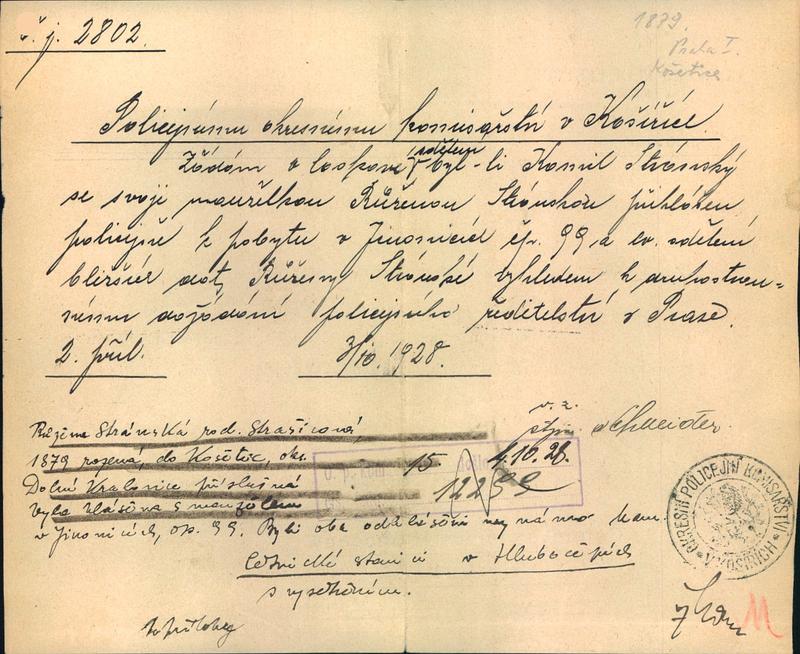 č. j. 2802.
1879.
Praha I.
Košetice
Policejnímu okresnímu komisařství v Košířích.
Žádám o laskavé sdělení byl-li Kamil Stránský
se svojí manželkou Růženou Stránskou přihlášen
policejně k pobytu v Jinonicích čp. 99 a ev. sdělení
bližších dat Růženy Stránské vzhledem k
dožádání policejního ředitelství v Praze.
2 příl. 3/10. 1928.
v. z.
Schneider.
Růžena Stránská roz.
1879 rozená, do Košetic, okr.
Dolní Kralovice příslušná
byla hlášena s manželem
v Jinonicích, čp. 99. Byli oba odhlášeni kam.
15 4.10.28.
12299
četnické stanici v Hlubočepích
s vyšetřením.
OKRESNÍ POLICEJNÍ KOMISAŘSTVÍ
V KOŠÍŘÍCH
M